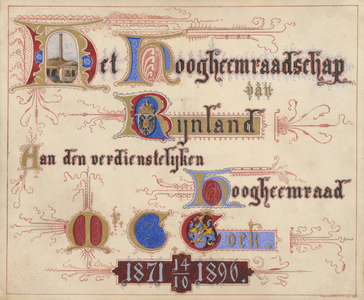 Het Hoogheemraadschap
van
Rijnland
Aan den verdienstelijken
Hoogheemraad
Mr C C Cock.
1871 14/10 1896.